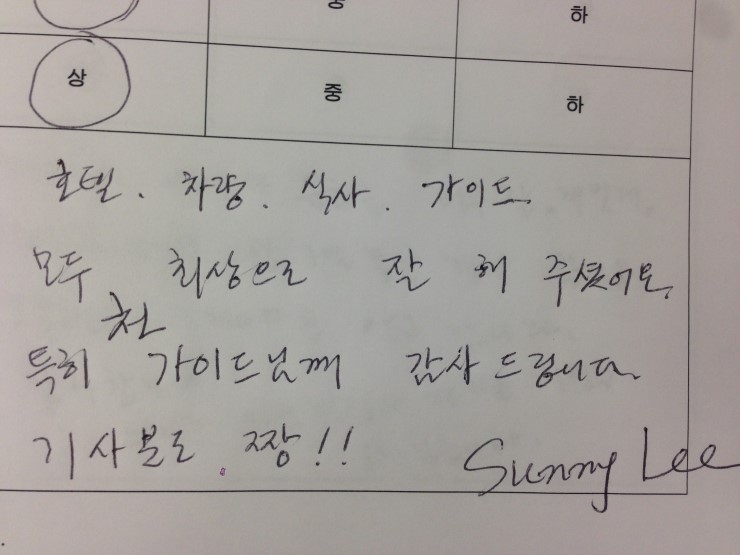 중 하
상 중 하
호텔. 차량. 식사. 가이드.
모두 최상으로 잘 해 주셨어요.
특히 천 가이드님께 감사드립니다.
기사분도. 짱!!
Sunny Lee